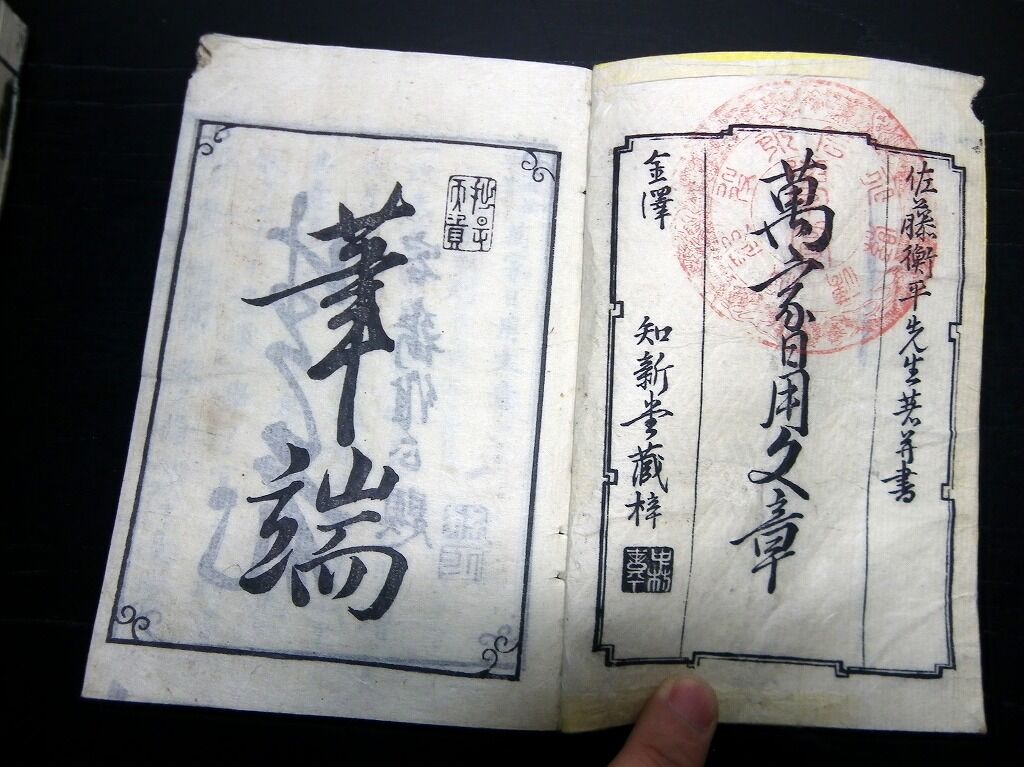 佐藤衡平先生著并書
萬家日用文章
金澤
知新堂蔵梓
筆端